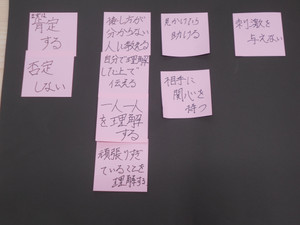 肯定
する
否定
しない
接し方が
分からない
人に教える
自分で理解
した上で
伝える
一人一人
を理解
する
頑張りすぎ
ていることを
理解する
見かけたら
助ける
相手に
関心を
持つ
刺激を
与えない